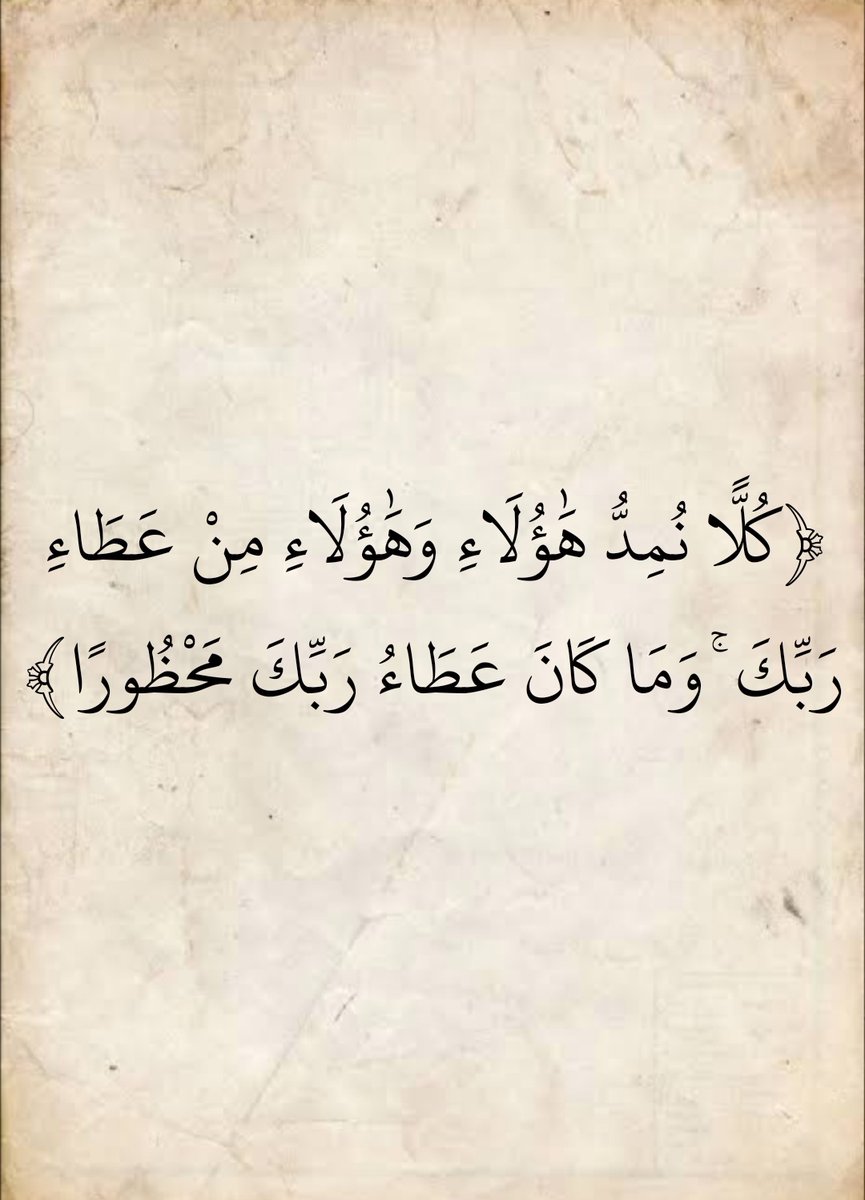 ﴿كُلًّا نُمِدُّ هَٰؤُلَاءِ وَهَٰؤُلَاءِ مِنْ عَطَاءِ
رَبِّكَ ۚ وَمَا كَانَ عَطَاءُ رَبِّكَ مَحْظُورًا﴾